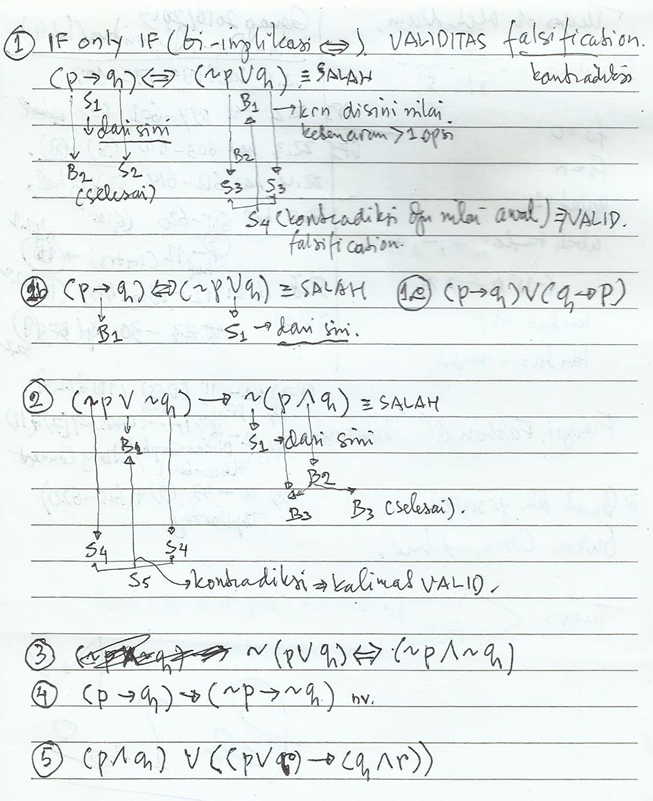 ① IF only IF (bi-implikasi ⇔). VALIDITAS falsification.
kontradiksi
(p → q) ⇔ (~p ∨ q) ≡ SALAH
S1 B1 → krn disini nilai
↓ dari sini kebenaran > 1 opsi
B2 S2 B2
(selesai) S3 S3
S4 (kontradiksi dgn nilai awal) ⇒ VALID.
falsification.
(p → q) ⇔ (~p ∨ q) ≡ SALAH (p → q) ∨ (q → p)
B1 S1 → dari sini.
② (~p ∨ ~q) → ~(p ∧ q) ≡ SALAH
B1 S1 → dari sini
B2
B3 B3 (selesai).
S4 S4
S5 → kontradiksi ⇒ kalimat VALID.
③ ~(p ∨ q) ⇔ (~p ∧ ~q)
④ (p → q) → (~p → ~q) nv.
⑤ (p ∧ q) ∨ ((p ∨ q) → (q ∧ r))